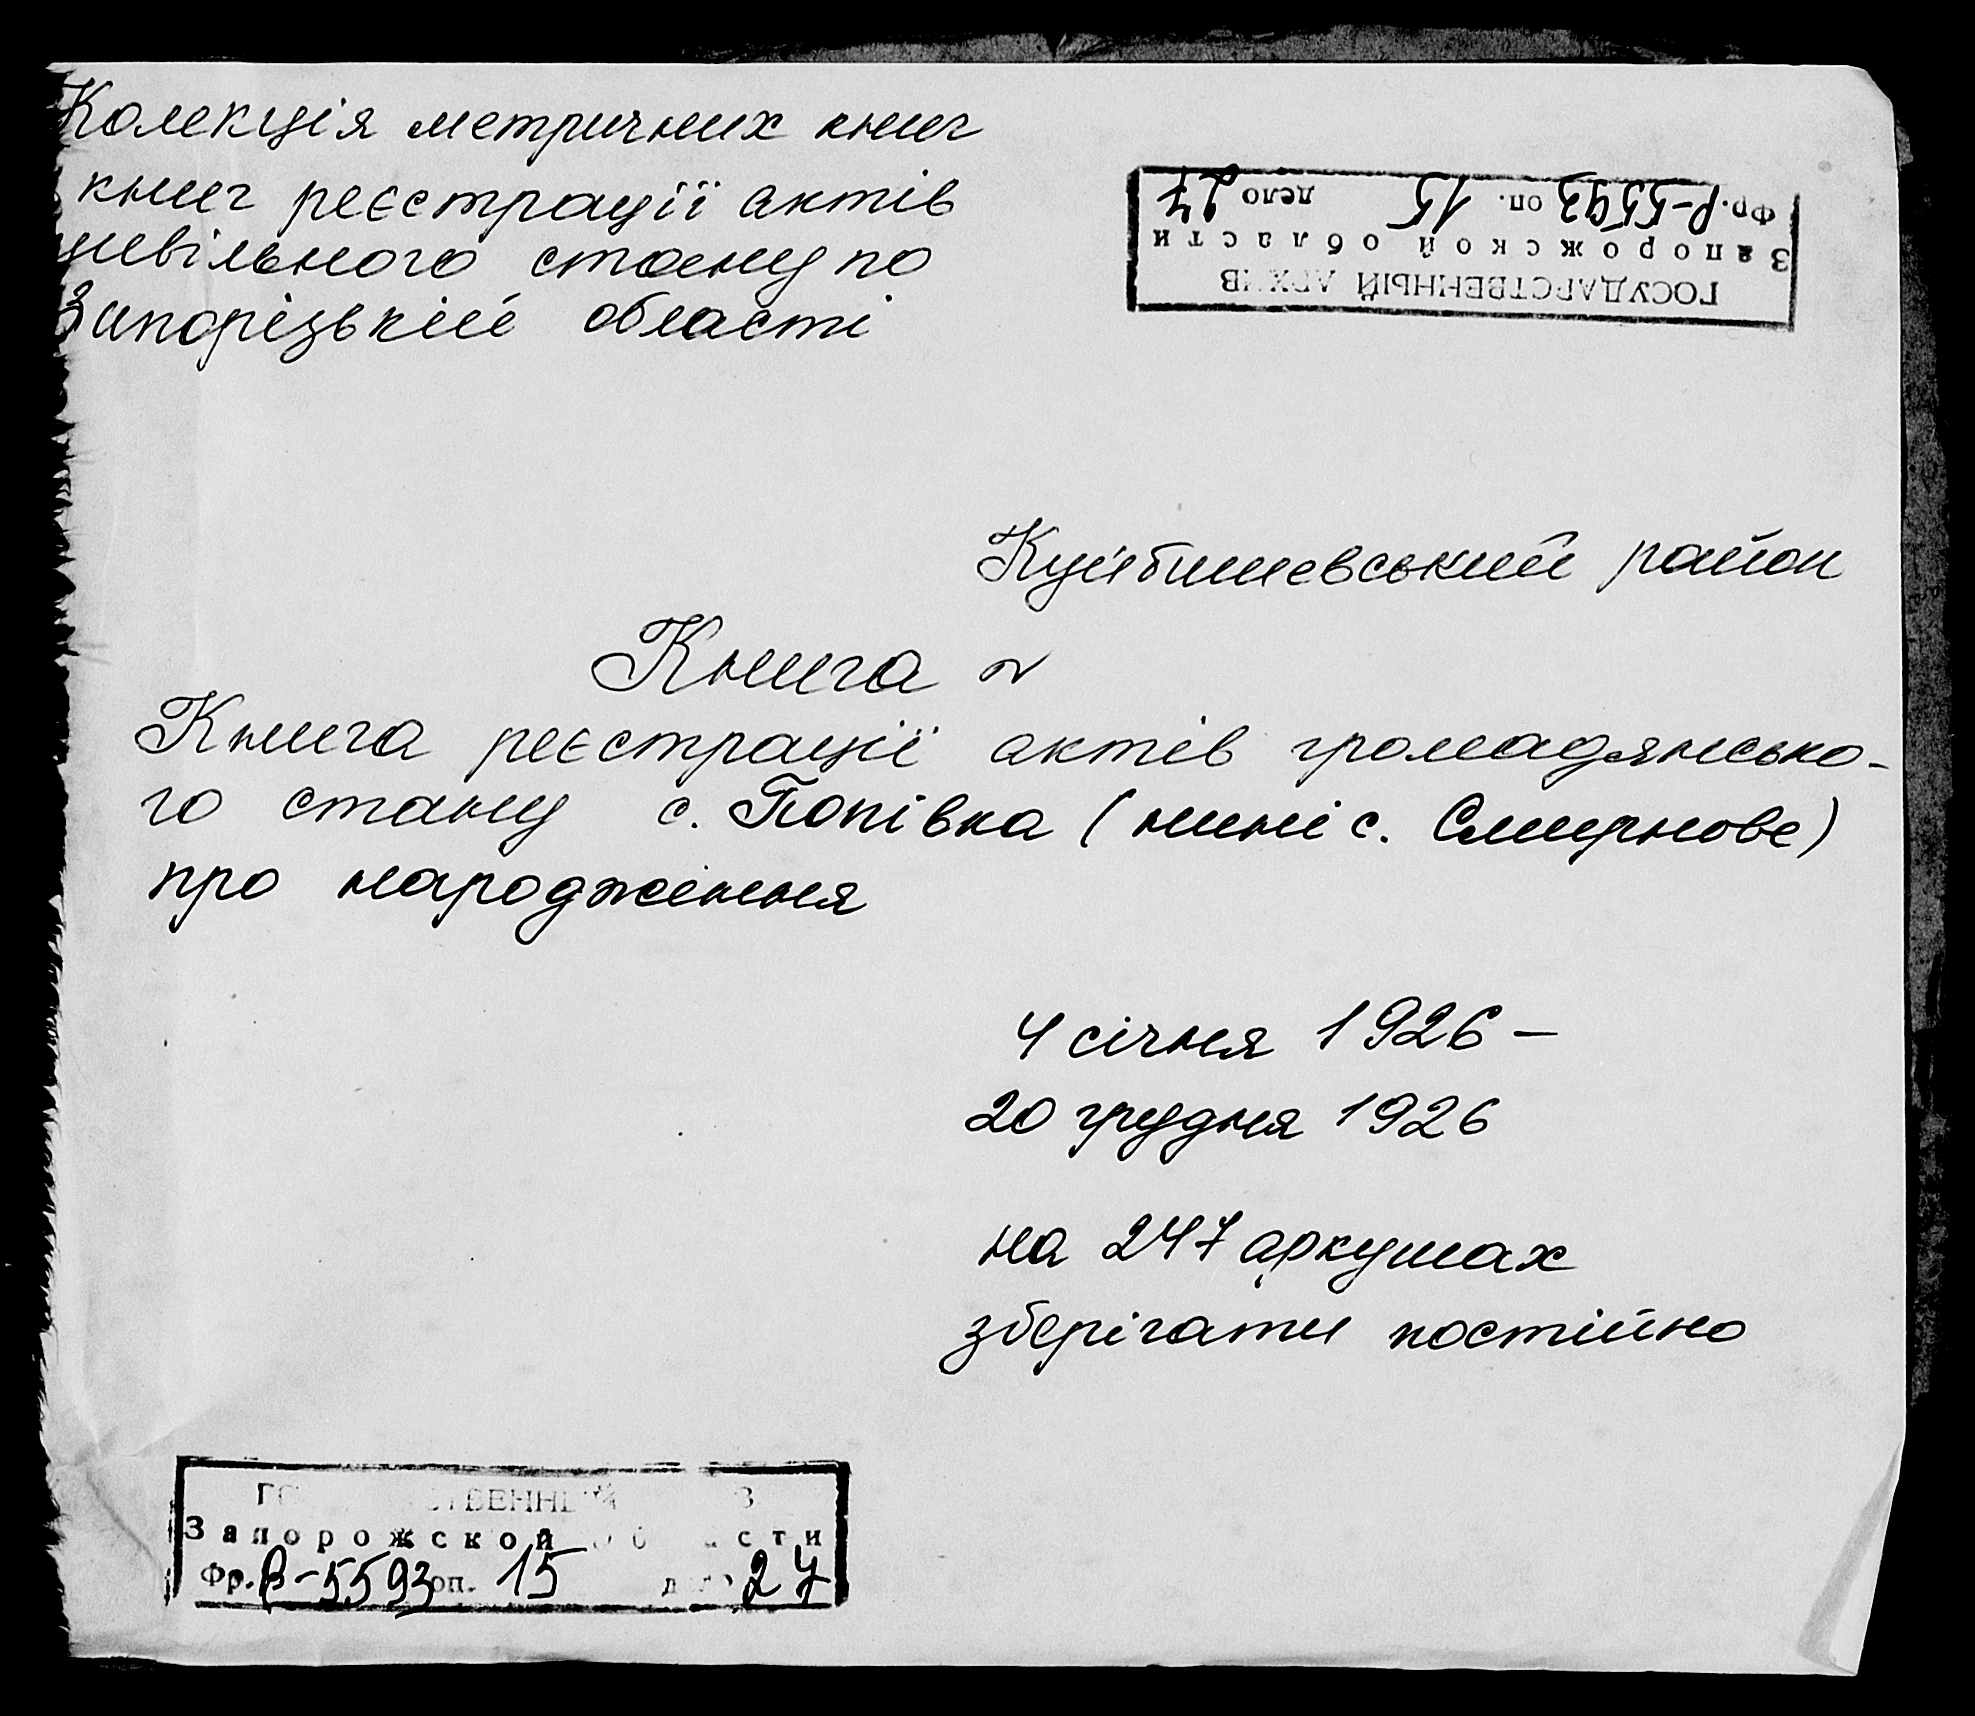 Колекція метричних книг
книг реєстрації актів
цивільного стану по
Запорізькій області
ГОСУДАРСТВЕННЫЙ АРХИВ
Запорожской области
Фр. Р-5593 оп. 15 дело 27
Куйбишевський район
Книга №
Книга реєстрації актів громадянсько-
го стану с. Попівка (нині с. Смирнове)
про народження
4 січня 1926 –
20 грудня 1926
на 247 аркушах
зберігати постійно
ГОСУДАРСТВЕННЫЙ АРХИВ
Запорожской области
Фр. Р-5593 оп. 15 дело 27